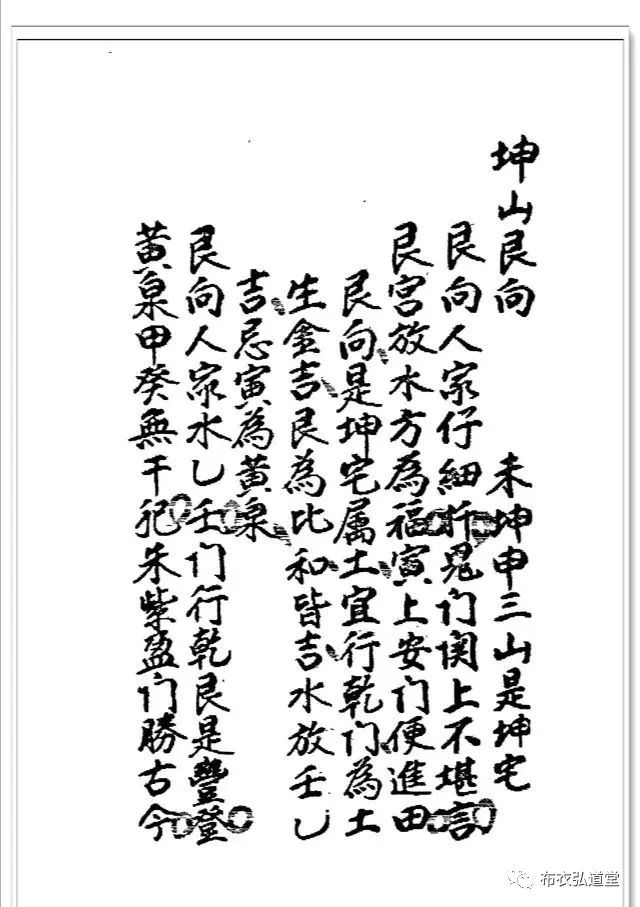 坤山艮向　未坤申三山是坤宅
艮向人家仔細扦鬼门関上不堪言
艮宮放水方為福寅上安门便進田
艮向是坤宅属土宜行乾门為土
生金吉艮為比和皆吉水放壬乙
吉忌寅為黃泉
艮向人家水乙壬门行乾艮是豐登
黃泉甲癸無干犯朱紫盈门勝古今
布衣弘道堂